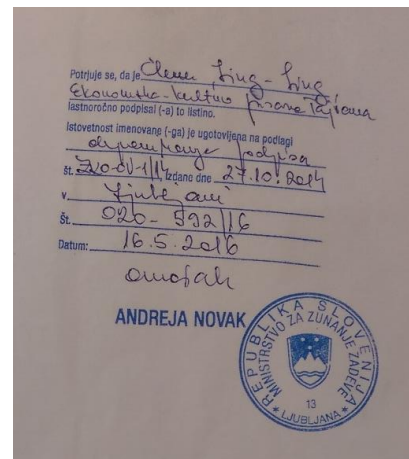 Potrjuje se, da je Chen Jing-Jing
Ekonomsko-kulturno pisarna Tajvana
lastnoročno podpisal (-a) to listino.
Istovetnost imenovane (-ga) je ugotovljena na podlagi
deponiranje podpisa
št. izdano dne 27.10.2014
v Ljubljani
Št. 020-592/16
Datum: 16.5.2016
ANDREJA NOVAK
REPUBLIKA SLOVENIJA
MINISTRSTVO ZA ZUNANJE ZADEVE
13
LJUBLJANA